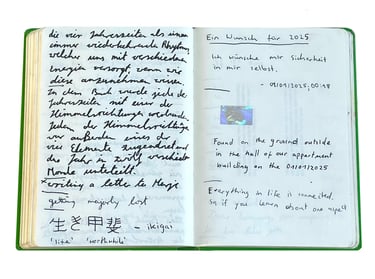 die vier Jahreszeiten als einen
immer wiederkehrende Rhythmus,
welcher uns mit verschiedenen
Energien versorgt, wenn wir
diese anzunehmen wissen.
In dem Buch wurde jede der
Jahreszeiten mit einer der
Himmelsrichtungen verbunden.
Jeden der Himmelsrichtige
war außerdem eines der
vier Elemente zugeordnet und
das Jahr in zwölf verschiede
Monde unterteilt.
writing a letter to Margo
getting majorly lost
生き甲斐 – ikigai
'life' 'worthwhile'
Ein Wunsch für 2025
Ich wünsche mir Sicherheit
in mir selbst.
- 01/01/2025, 00:58
Found on the ground outside
in the hall of our appartment
building on the 01/01/2025
Everything in life is connected,
so if you learn about one aspect